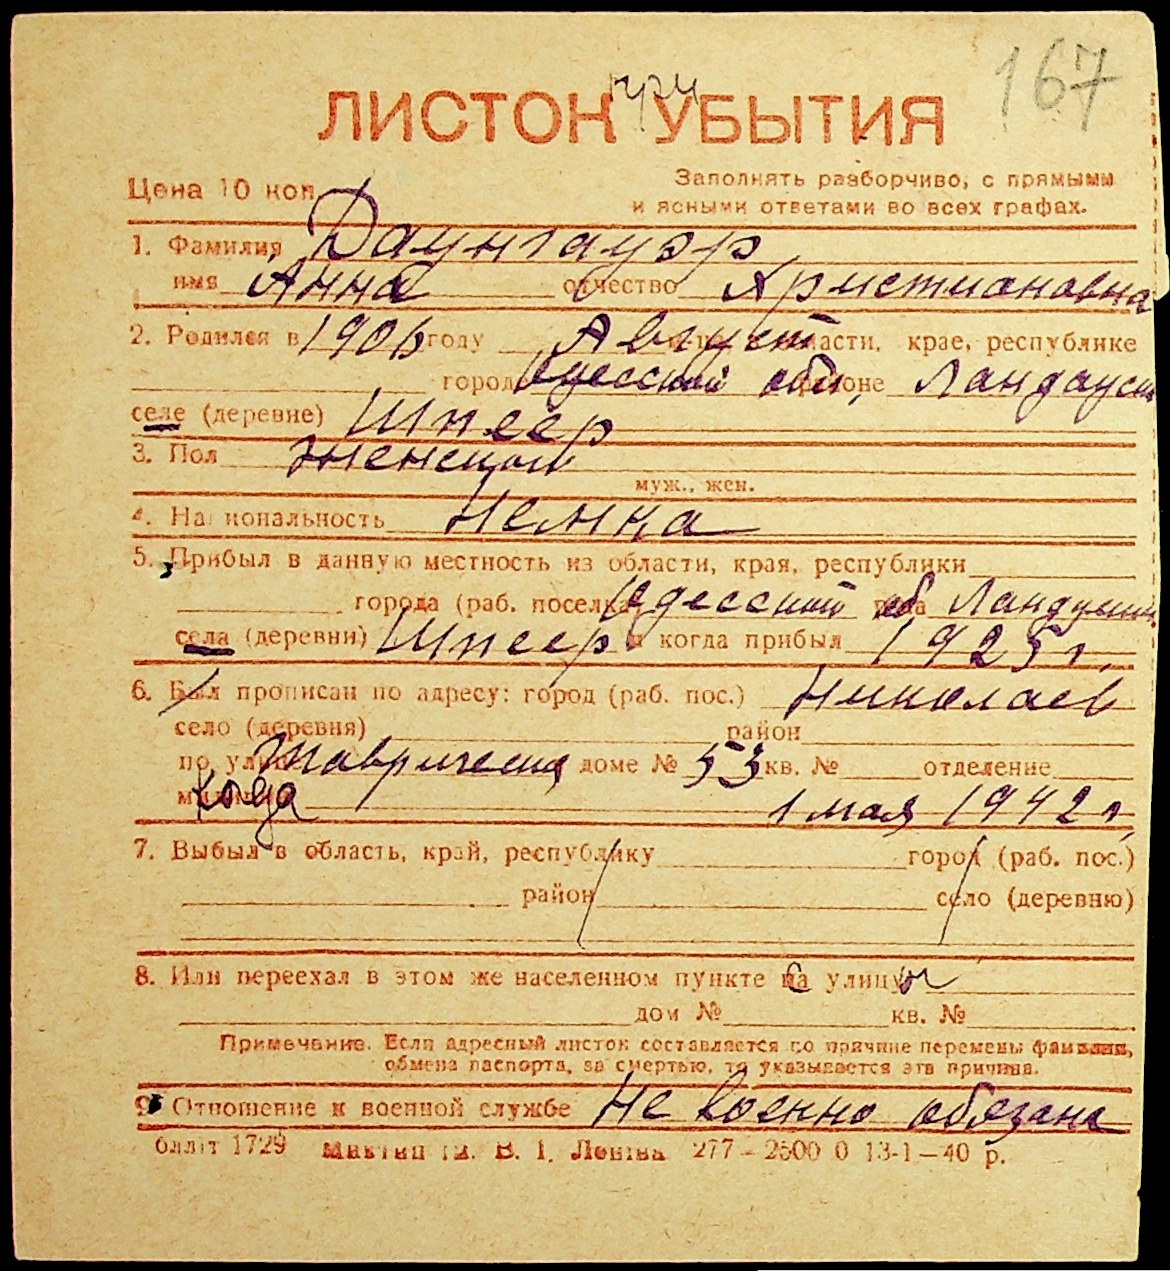 167
ЛИСТОК при УБЫТИЯ
Цена 10 коп.
Заполнять разборчиво, с прямыми
и ясными ответами во всех графах.
1. Фамилия Даунгауэр
имя Анна отчество Христиановна
2. Родился в 1906 году Август области, крае, республике
городе Одесской обл, районе Ландауск
селе (деревне) Шпеер
3. Пол женский
муж., жен.
4. Национальность Немка
5. Прибыл в данную местность из области, края, республики
города (раб. поселка) Одесской об Ландауский
села (деревни) Шпеер и когда прибыл 1925 г.
6. Был прописан по адресу: город (раб. пос.) Николаев
село (деревня) район
по улице Таврическая доме № 53 кв. № отделение
милиции когда 1 мая 1942 г.
7. Выбыл в область, край, республику город (раб. пос.)
район село (деревню)
8. Или переехал в этом же населенном пункте с улицы
дом № кв. №
Примечание. Если адресный листок составляется по причине перемены фамилии,
обмена паспорта, за смертью, то указывается эта причина.
9. Отношение к военной службе Не военно обязана
бліт 1729 В. І. Леніна 277 – 2500 0 13-1–40 р.